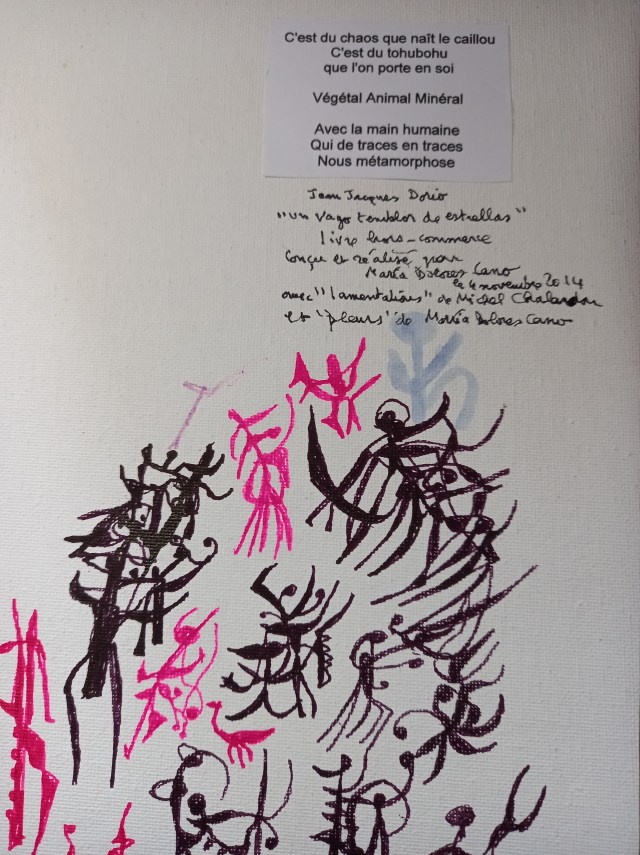 C'est du chaos que naît le caillou
C'est du tohubohu
que l'on porte en soi
Végétal Animal Minéral
Avec la main humaine
Qui de traces en traces
Nous métamorphose
Jean Jacques Dorio
"un vago temblor de estrellas"
livre hors-commerce
conçu et réalisé par
María Dolores Cano
le 4 novembre 2014
avec "lamentations" de Michel Chalandon
et "pleurs" de María Dolores Cano